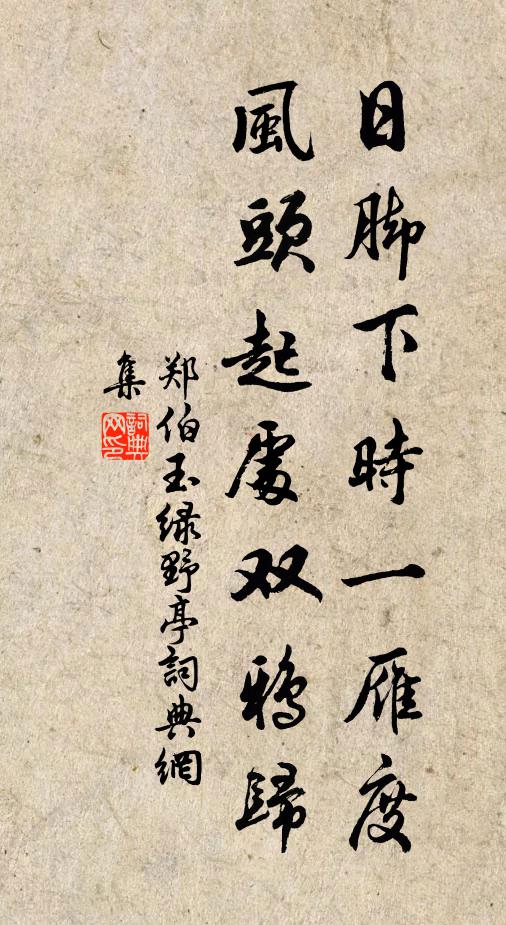 日脚下時一雁度
風頭起處双鴉歸
郑伯玉绿野亭詞典網
集
詞典网印